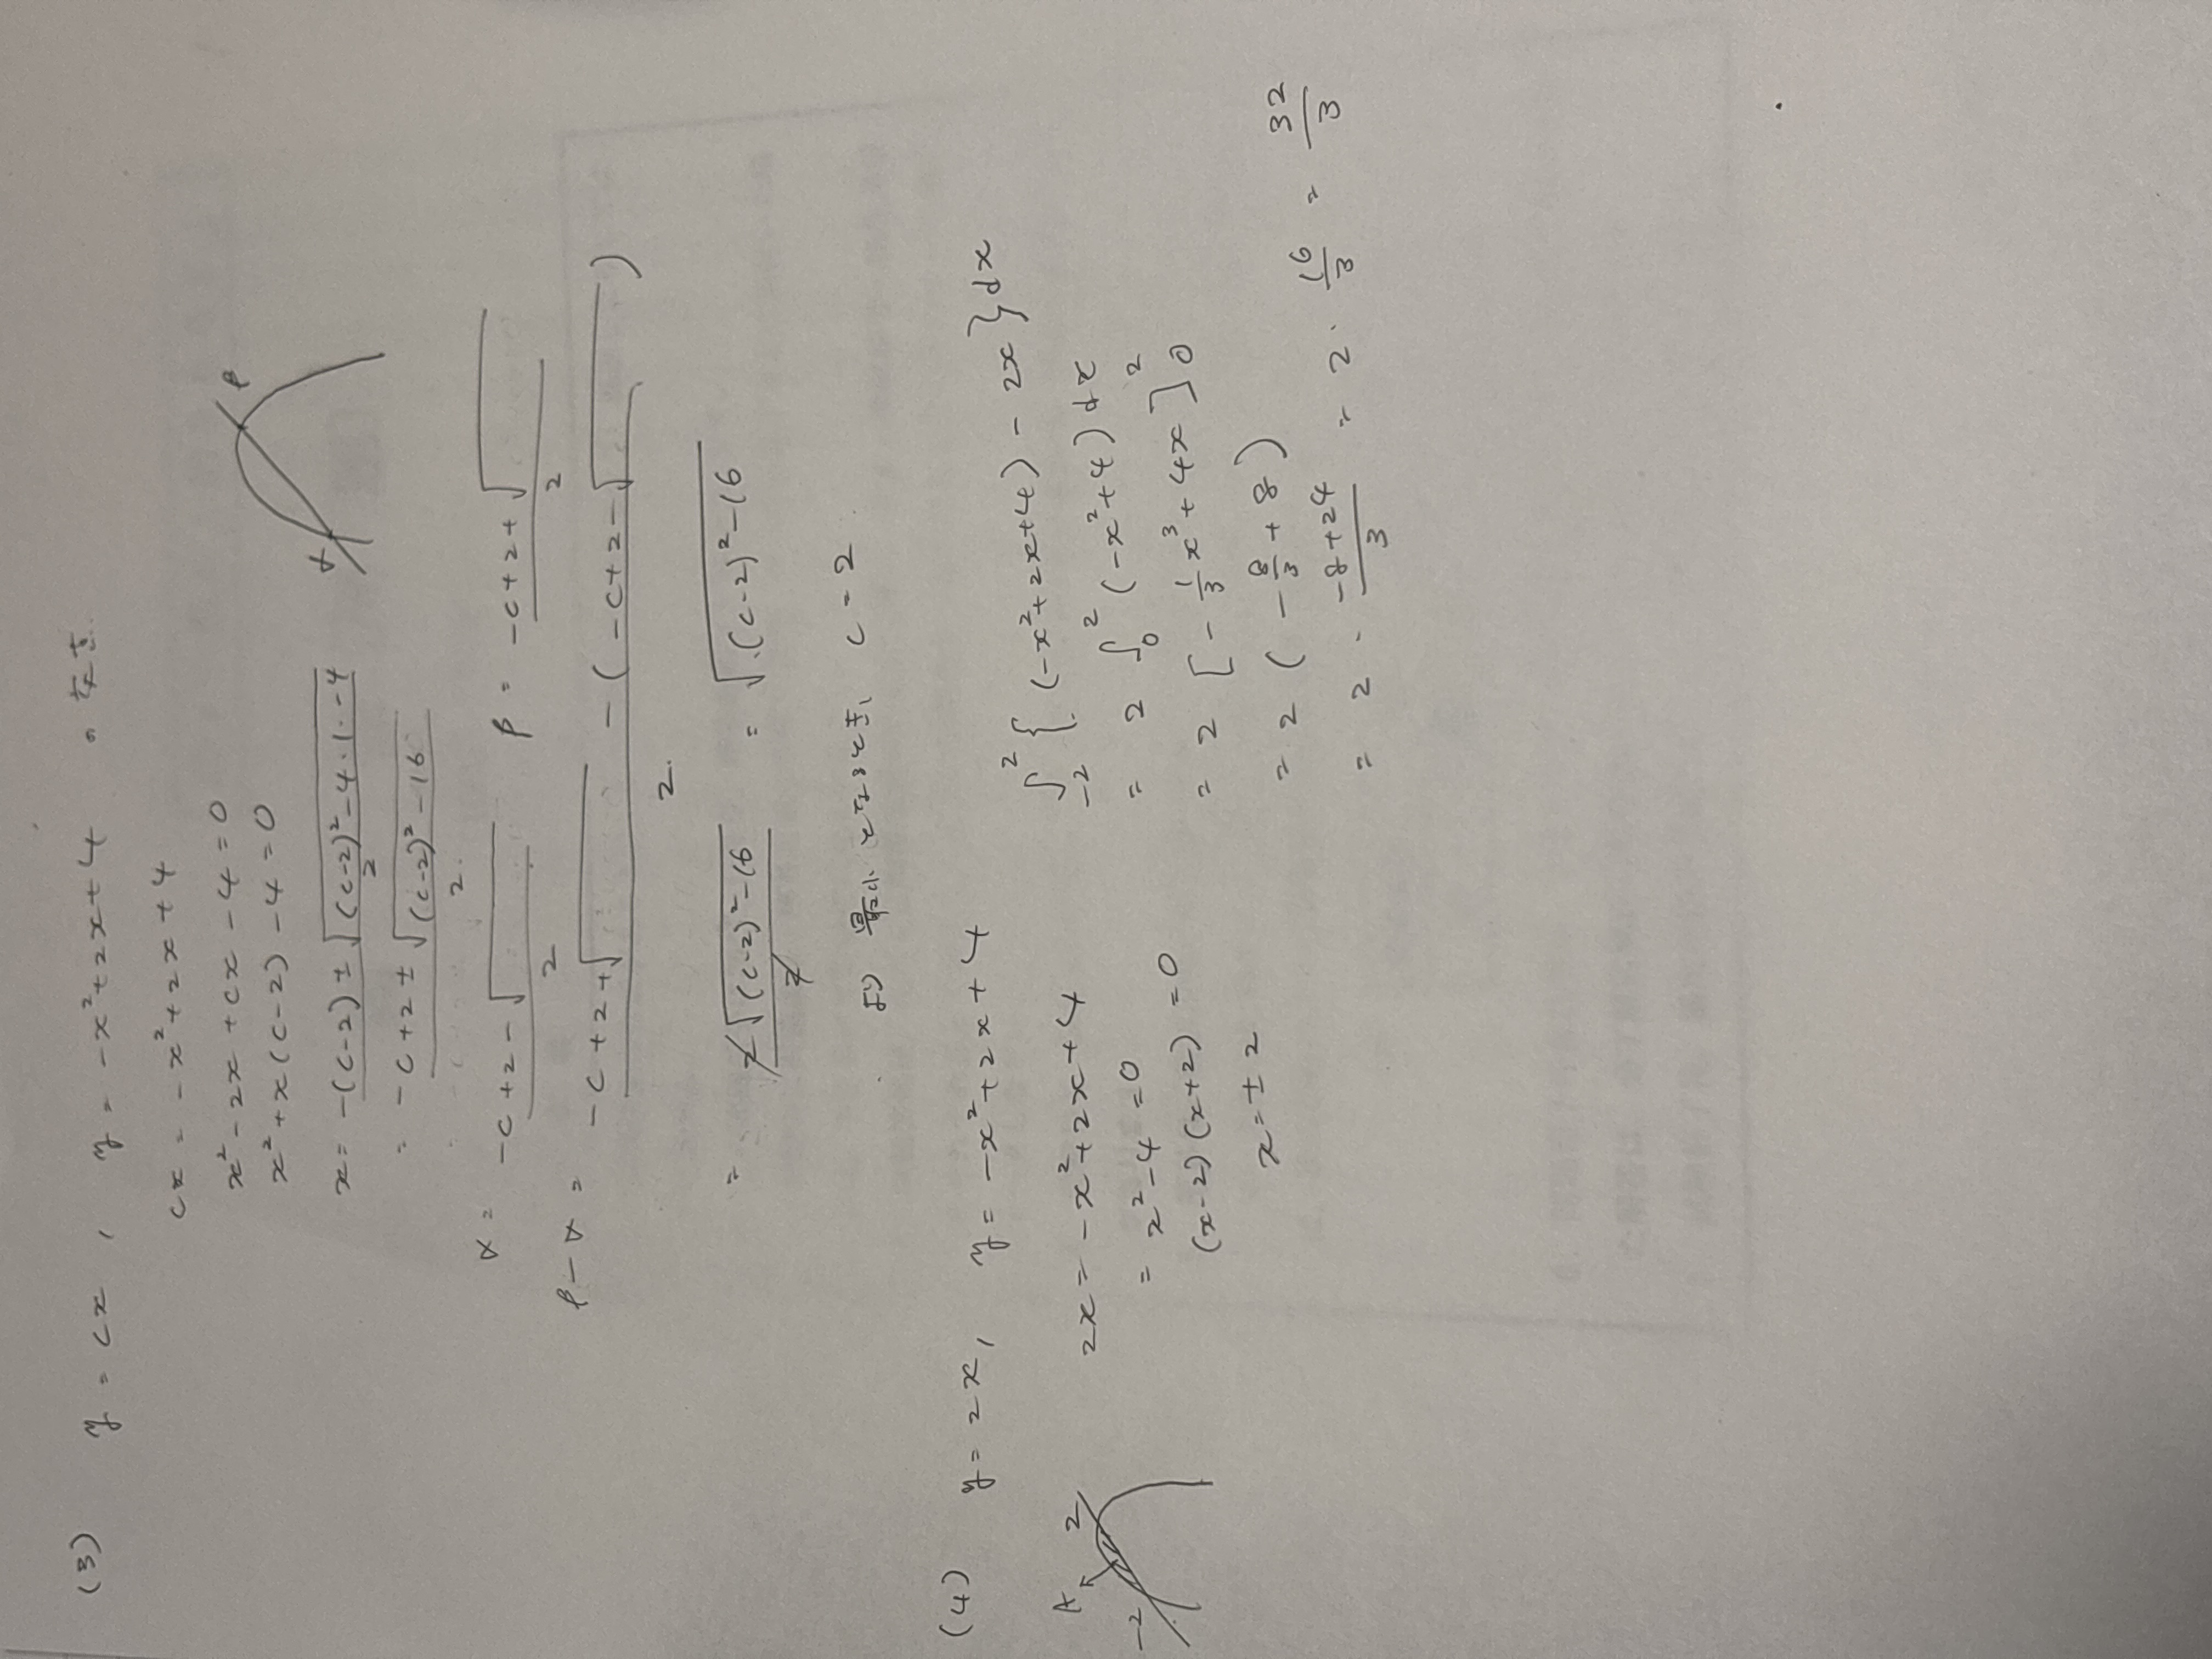 (3) y = cx , y = -x²+2x+4 の交点.
cx = -x²+2x+4
x²-2x+cx-4=0
x²+x(c-2)-4=0
x = -(c-2)±√(c-2)²-4·1·-4 / 2
= -c+2±√(c-2)²-16 / 2.
α β
α = -c+2-√ / 2 β = -c+2+√ / 2
β-α = -c+2+√ - (-c+2-√ ) / 2.
= 2√(c-2)²-16 / 2 = √(c-2)²-16
より 最小 c=2
(4) y=2x, y=-x²+2x+4
2x = -x²+2x+4
= x²-4=0
(x-2)(x+2)=0
x=±2
A
-2 2
∫₋₂² {(-x²+2x+4) - 2x}dx
= 2 ∫₀² (-x²+4)dx
= 2 [-1/3 x³+4x]₀²
= 2 (-8/3+8)
= 2 · -8+24 / 3 = 2 · 16/3 = 32/3